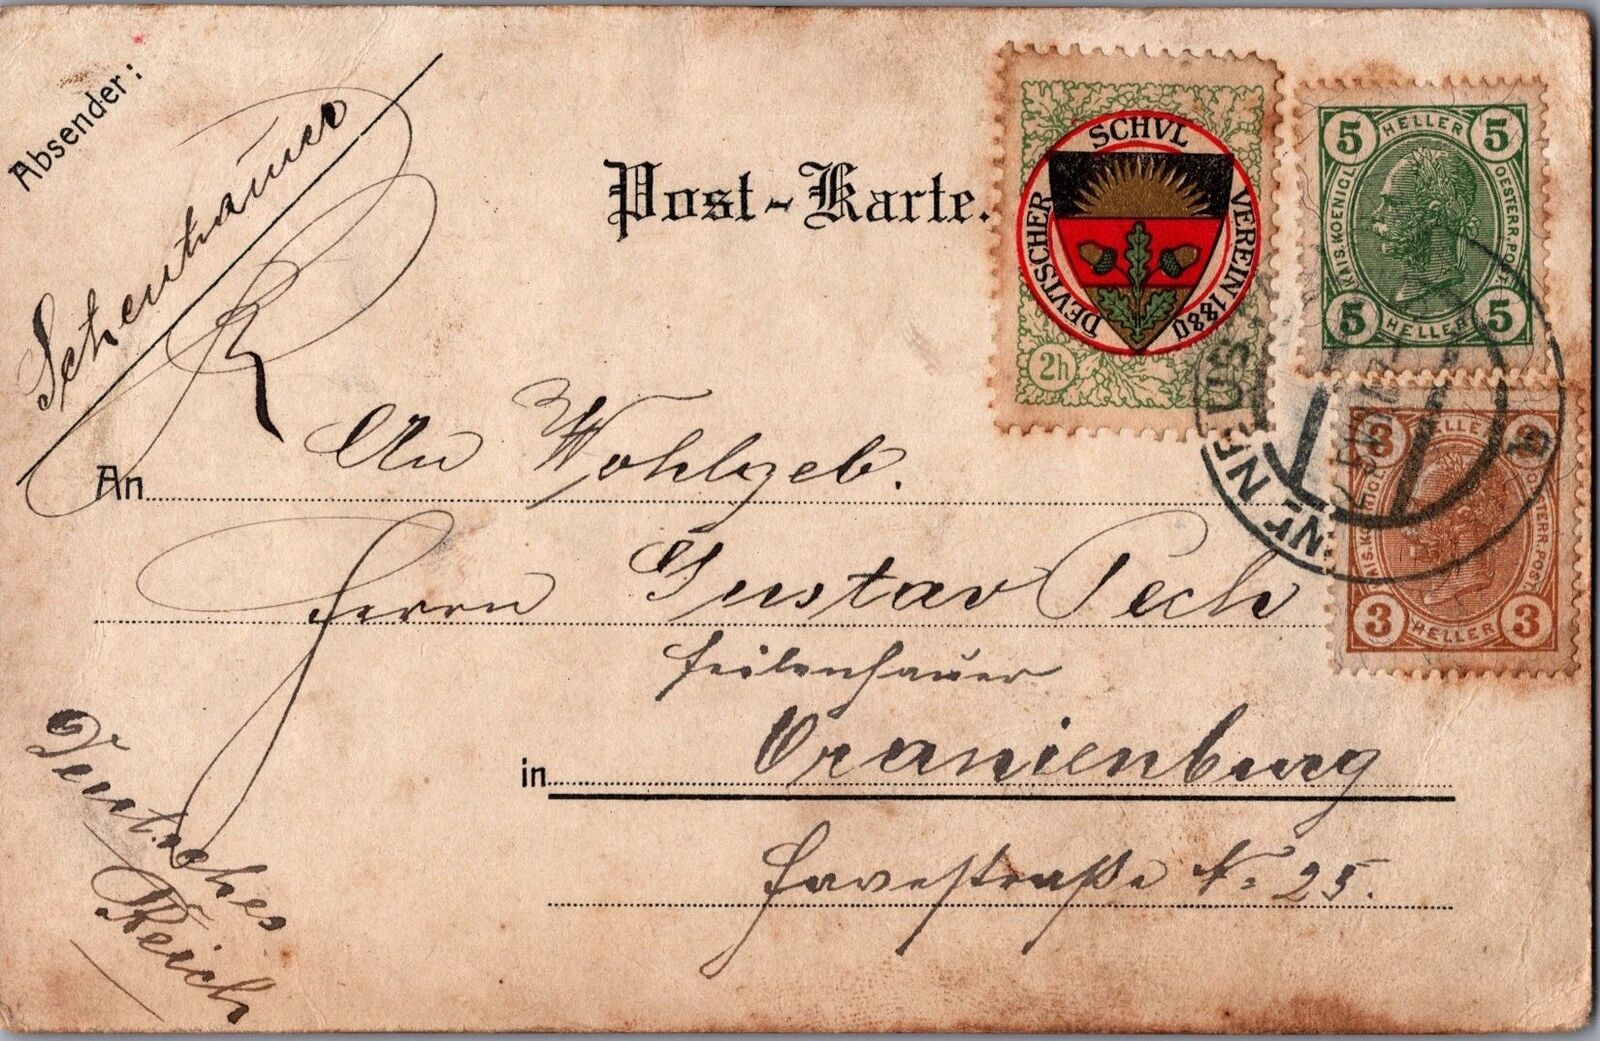 Absender:
Schenhauer
Post-Karte.
DEVTSCHER SCHVL VEREIN 1880
2h
5 HELLER 5
KAIS. KOENIGL. OESTERR. POST
5 HELLER 5
3 HELLER 3
KAIS. KOENIGL. OESTERR. POST
3 HELLER 3
An
An Wohlgeb.
Herrn Gustav Pech
Feilenhauer
in Oranienburg
Havestraße N= 25.
Deutsches
Reich